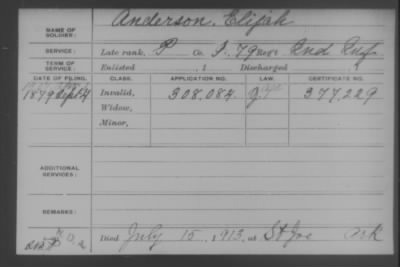 NAME OF SOLDIER: Anderson, Elijah
SERVICE: Late rank, P Co. I, 79 Reg't Ind Inf
TERM OF SERVICE: Enlisted , 1 Discharged , 1
DATE OF FILING. CLASS. APPLICATION NO. LAW. CERTIFICATE NO.
1879 Sept 4 Invalid, 308,084. 377,229
Widow,
Minor,
ADDITIONAL SERVICES:
REMARKS:
Died July 15, 1913, at St Joe Ark